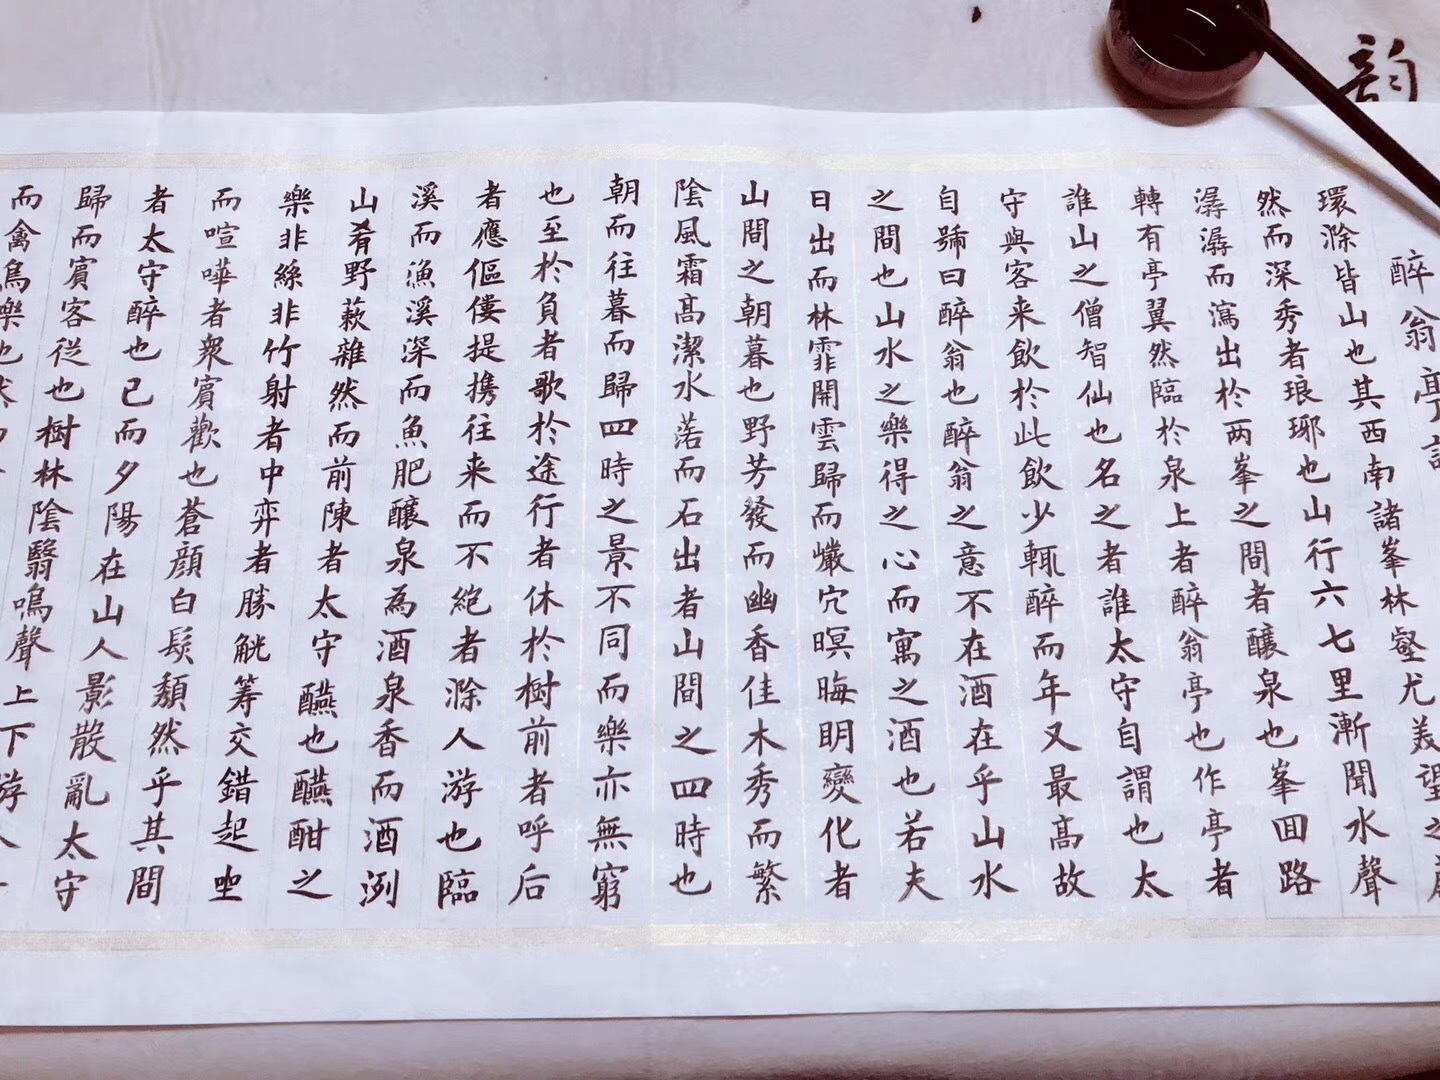 韵
醉翁亭記
環滁皆山也其西南諸峯林壑尤美望之蔚
然而深秀者琅琊也山行六七里漸聞水聲
潺潺而瀉出於两峯之間者釀泉也峯回路
轉有亭翼然臨於泉上者醉翁亭也作亭者
誰山之僧智仙也名之者誰太守自謂也太
守與客来飲於此飲少輒醉而年又最髙故
自號曰醉翁也醉翁之意不在酒在乎山水
之間也山水之樂得之心而寓之酒也若夫
日出而林霏開雲歸而巗穴暝晦明變化者
山間之朝暮也野芳發而幽香佳木秀而繁
陰風霜髙潔水落而石出者山間之四時也
朝而往暮而歸四時之景不同而樂亦無窮
也至於負者歌於途行者休於樹前者呼后
者應傴僂提携往来而不絕者滁人游也臨
溪而漁溪深而魚肥釀泉為酒泉香而酒洌
山肴野蔌雜然而前陳者太守醼也醼酣之
樂非絲非竹射者中弈者勝觥筹交錯起坐
而喧嘩者衆賓歡也蒼顔白髮頹然乎其間
者太守醉也已而夕陽在山人影散亂太守
歸而賓客従也樹林陰翳鳴聲上下游人
而禽鳥樂也然而